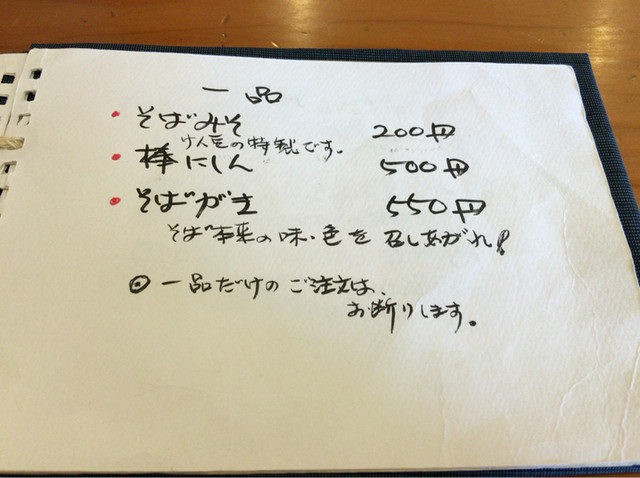 一品
・そばみそ 200円
の特製です。
・棒にしん 500円
・そばがき 550円
そば本来の味・色を召しあがれ!
◎一品だけのご注文は、
お断りします。